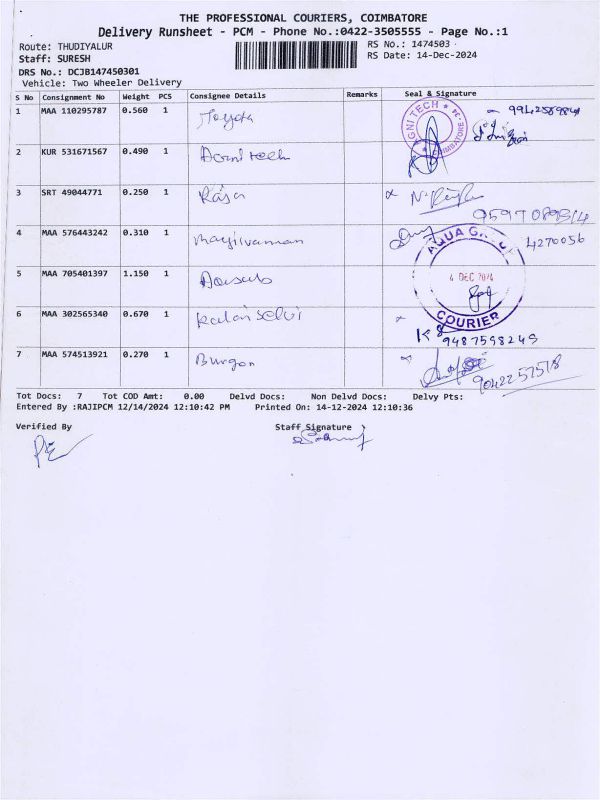 THE PROFESSIONAL COURIERS, COIMBATORE
Delivery Runsheet - PCM - Phone No.:0422-3505555 - Page No.:1
Route: THUDIYALUR
RS No.: 1474503
Staff: SURESH
RS Date: 14-Dec-2024
DRS No.: DCJB147450301
Vehicle: Two Wheeler Delivery
S No Consignment No Weight PCS Consignee Details Remarks Seal & Signature
1 MAA 110295787 0.560 1 Toyota
AGNI TECH COIMBATORE
2 KUR 531671567 0.490 1
3 SRT 49044771 0.250 1 Raja
4 MAA 576443242 0.310 1 Mayilvannan
4270056
AQUA
4 DEC 2024
COURIER
5 MAA 705401397 1.150 1
6 MAA 302565340 0.670 1 Kalai Selvi
9487598249
7 MAA 574513921 0.270 1 Burgon
9042257578
Tot Docs: 7 Tot COD Amt: 0.00 Delvd Docs: Non Delvd Docs: Delvy Pts:
Entered By :RAJIPCM 12/14/2024 12:10:42 PM Printed On: 14-12-2024 12:10:36
Verified By
Staff Signature